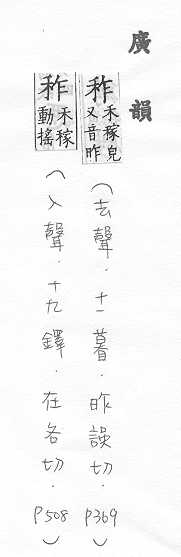 廣韻
秨禾稼皃又音昨(去聲．十一暮．昨誤切．P369)
秨禾稼動搖(入聲．十九鐸．在各切．P508)